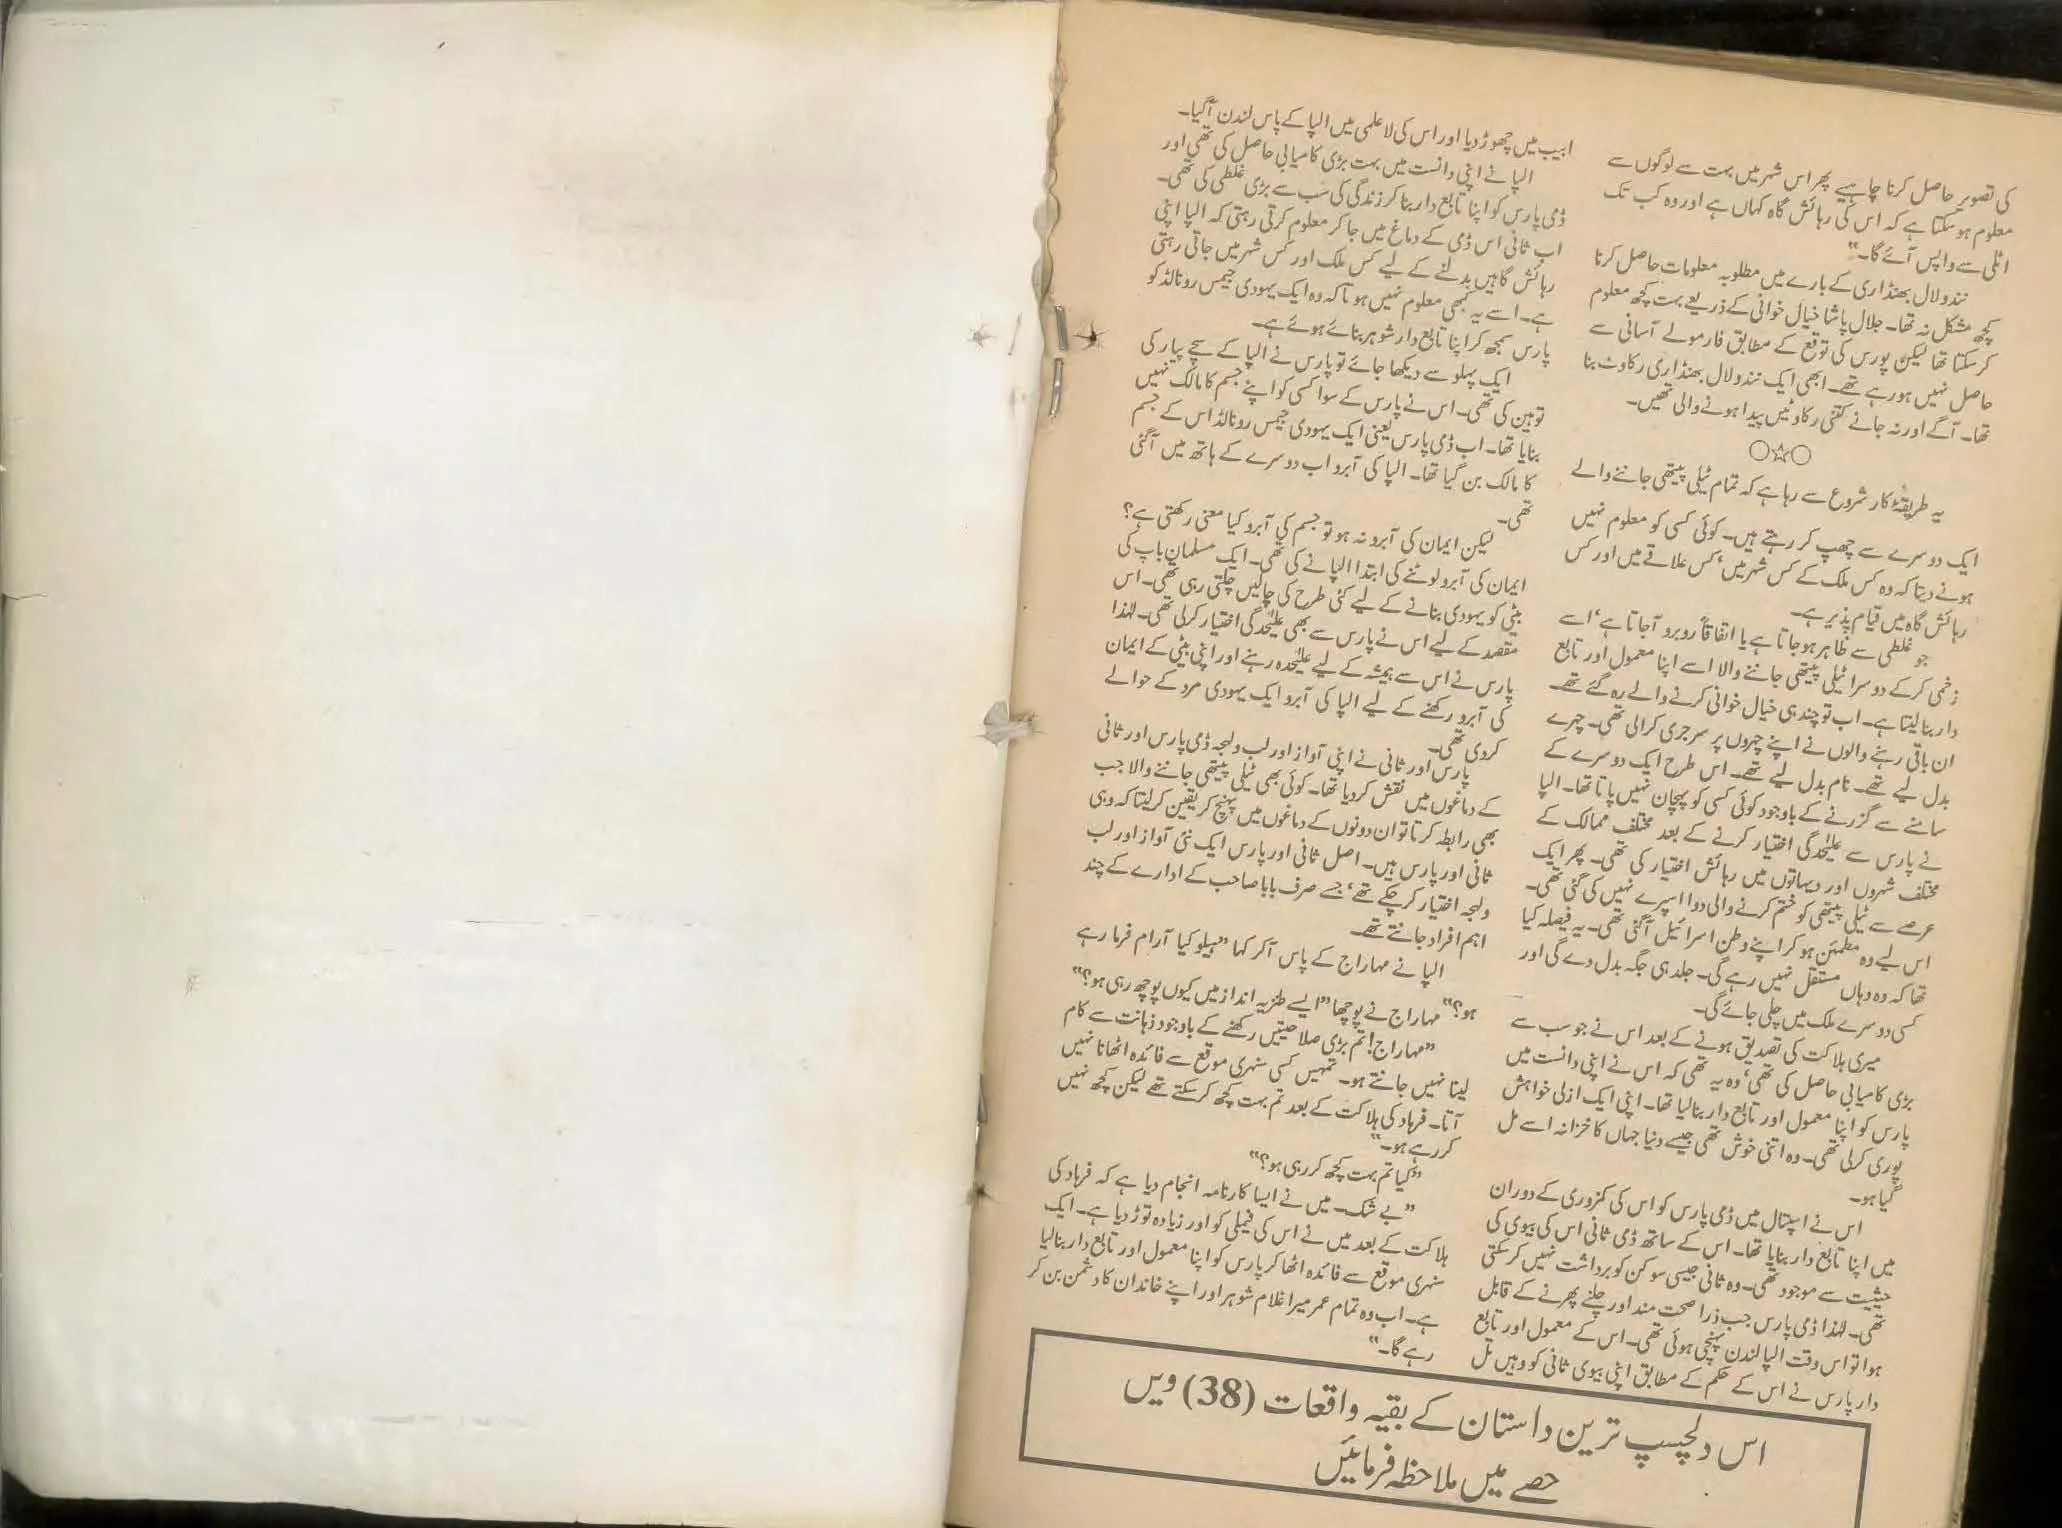 کی تصویر حاصل کرنا چاہیے پھر اس شہر میں بہت سے لوگوں سے
معلوم ہو سکتا ہے کہ اس کی رہائش گاہ کہاں ہے اور وہ کب تک
اٹلی سے واپس آئے گا۔"
نندولال بھنڈاری کے بارے میں مطلوبہ معلومات حاصل کرنا
کچھ مشکل نہ تھا۔ جلال پاشا خیال خوانی کے ذریعے بہت کچھ معلوم
کر سکتا تھا لیکن پورس کی توقع کے مطابق فارمولے آسانی سے
حاصل نہیں ہو رہے تھے۔ ابھی ایک نندولال بھنڈاری رکاوٹ بنا
تھا۔ آگے اور نہ جانے کتنی رکاوٹیں پیدا ہونے والی تھیں۔
○☆○
یہ طریقۂ کار شروع سے رہا ہے کہ تمام ٹیلی پیتھی جاننے والے
ایک دوسرے سے چھپ کر رہتے ہیں۔ کوئی کسی کو معلوم نہیں
ہونے دیتا کہ وہ کس ملک کے کس شہر میں، کس علاقے میں اور کس
رہائش گاہ میں قیام پذیر ہے۔
جو غلطی سے ظاہر ہو جاتا ہے یا اتفاقاً روبرو آجاتا ہے، اسے
زخمی کرکے دوسرا ٹیلی پیتھی جاننے والا اسے اپنا معمول اور تابع
دار بنا لیتا ہے۔ اب تو چند ہی خیال خوانی کرنے والے رہ گئے تھے۔
ان باقی رہنے والوں نے اپنے چہروں پر سرجری کرالی تھی۔ چہرے
بدل لیے تھے۔ نام بدل لیے تھے۔ اس طرح ایک دوسرے کے
سامنے سے گزرنے کے باوجود کوئی کسی کو پہچان نہیں پاتا تھا۔ الپا
نے پارس سے علیٰحدگی اختیار کرنے کے بعد مختلف ممالک کے
مختلف شہروں اور دیہاتوں میں رہائش اختیار کی تھی۔ پھر ایک
عرصے سے ٹیلی پیتھی کو ختم کرنے والی دوا اسپرے نہیں کی گئی تھی۔
اس لیے وہ مطمئن ہو کر اپنے وطن اسرائیل آگئی تھی۔ یہ فیصلہ کیا
تھا کہ وہ وہاں مستقل نہیں رہے گی۔ جلد ہی جگہ بدل دے گی اور
کسی دوسرے ملک میں چلی جائے گی۔
میری ہلاکت کی تصدیق ہونے کے بعد اس نے جو سب سے
بڑی کامیابی حاصل کی تھی، وہ یہ تھی کہ اس نے اپنی دانست میں
پارس کو اپنا معمول اور تابع دار بنا لیا تھا۔ اپنی ایک ازلی خواہش
پوری کرلی تھی۔ وہ اتنی خوش تھی جیسے دنیا جہاں کا خزانہ اسے مل
گیا ہو۔
اس نے اسپتال میں ڈمی پارس کو اس کی کمزوری کے دوران
میں اپنا تابع دار بنایا تھا۔ اس کے ساتھ ڈمی ثانی اس کی بیوی کی
حیثیت سے موجود تھی۔ وہ ثانی جیسی سوکن کو برداشت نہیں کر سکتی
تھی۔ لہٰذا ڈمی پارس جب ذرا صحت مند اور چلنے پھرنے کے قابل
ہوا تو اس وقت الپا لندن پہنچی ہوئی تھی۔ اس کے معمول اور تابع
دار پارس نے اس کے حکم کے مطابق اپنی بیوی ثانی کو وہیں تل
ابیب میں چھوڑ دیا اور اس کی لاعلمی میں الپا کے پاس لندن آگیا۔
الپا نے اپنی دانست میں بہت بڑی کامیابی حاصل کی تھی اور
ڈمی پارس کو اپنا تابع دار بنا کر زندگی کی سب سے بڑی غلطی کی تھی۔
اب ثانی اس ڈمی کے دماغ میں جا کر معلوم کرتی رہتی کہ الپا اپنی
رہائش گاہیں بدلنے کے لیے کس ملک اور کس شہر میں جاتی رہتی
ہے۔ اسے یہ کبھی معلوم نہیں ہو تا کہ وہ ایک یہودی جیمس رونالڈ کو
پارس سمجھ کر اپنا تابع دار شوہر بنائے ہوئے ہے۔
ایک پہلو سے دیکھا جائے تو پارس نے الپا کے سچے پیار کی
توہین کی تھی۔ اس نے پارس کے سوا کسی کو اپنے جسم کا مالک نہیں
بنایا تھا۔ اب ڈمی پارس یعنی ایک یہودی جیمس رونالڈ اس کے جسم
کا مالک بن گیا تھا۔ الپا کی آبرو اب دوسرے کے ہاتھ میں آگئی
تھی۔
لیکن ایمان کی آبرو نہ ہو تو جسم کی آبرو کیا معنی رکھتی ہے؟
ایمان کی آبرو لوٹنے کی ابتدا الپا نے کی تھی۔ ایک مسلمان باپ کی
بیٹی کو یہودی بنانے کے لیے کئی طرح کی چالیں چلتی رہی تھی۔ اس
مقصد کے لیے اس نے پارس سے بھی علیٰحدگی اختیار کرلی تھی۔ لہٰذا
پارس نے اس سے ہمیشہ کے لیے علیٰحدہ رہنے اور اپنی بیٹی کے ایمان
کی آبرو رکھنے کے لیے الپا کی آبرو ایک یہودی مرد کے حوالے
کر دی تھی۔
پارس اور ثانی نے اپنی آواز اور لب ولہجہ ڈمی پارس اور ثانی
کے دماغوں میں نقش کر دیا تھا۔ کوئی بھی ٹیلی پیتھی جاننے والا جب
بھی رابطہ کرتا تو ان دونوں کے دماغوں میں پہنچ کر یقین کر لیتا کہ وہی
ثانی اور پارس ہیں۔ اصل ثانی اور پارس ایک نئی آواز اور لب
ولہجہ اختیار کر چکے تھے، جسے صرف بابا صاحب کے ادارے کے چند
اہم افراد جانتے تھے۔
الپا نے مہاراج کے پاس آکر کہا "ہیلو کیا آرام فرما رہے
ہو؟" مہاراج نے پوچھا "ایسے طنزیہ انداز میں کیوں پوچھ رہی ہو؟"
"مہاراج! تم بڑی صلاحیتیں رکھنے کے باوجود ذہانت سے کام
لینا نہیں جانتے ہو۔ تمہیں کسی سنہری موقع سے فائدہ اٹھانا نہیں
آتا۔ فرہاد کی ہلاکت کے بعد تم بہت کچھ کر سکتے تھے لیکن کچھ نہیں
کر رہے ہو۔"
"کیا تم بہت کچھ کر رہی ہو؟"
"بے شک۔ میں نے ایسا کارنامہ انجام دیا ہے کہ فرہاد کی
ہلاکت کے بعد میں نے اس کی فیملی کو اور زیادہ توڑ دیا ہے۔ ایک
سنہری موقع سے فائدہ اٹھا کر پارس کو اپنا معمول اور تابع دار بنا لیا
ہے۔ اب وہ تمام عمر میرا غلام شوہر اور اپنے خاندان کا دشمن بن کر
رہے گا۔"
اس دلچسپ ترین داستان کے بقیہ واقعات (38) ویں
حصے میں ملاحظہ فرمائیں